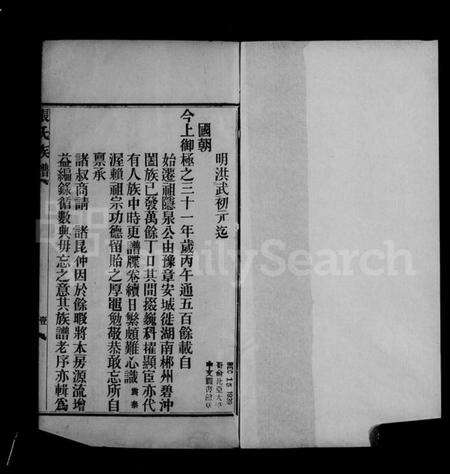 明洪武初元迄
國朝
今上御極之三十一年歲丙午通五百餘載自
始遷祖隱泉公由豫章安城徙湖南郴州碧沖
闔族已發萬餘丁口其間掇巍科擢顯臣亦代
有人族中時更譜牒卷續日繁頗難心識 寅泰
渥賴祖宗功德留胎之厚黽勉敬恭敢忘所自
稟承
諸叔商請 諸昆仲因於餘暇將本房源流增
益編錄循數典毋忘之意其族譜老序亦輯爲
張氏族譜
壹
DEC 15 1928
哥倫比亞大學
中文圖書館
FamilySearch